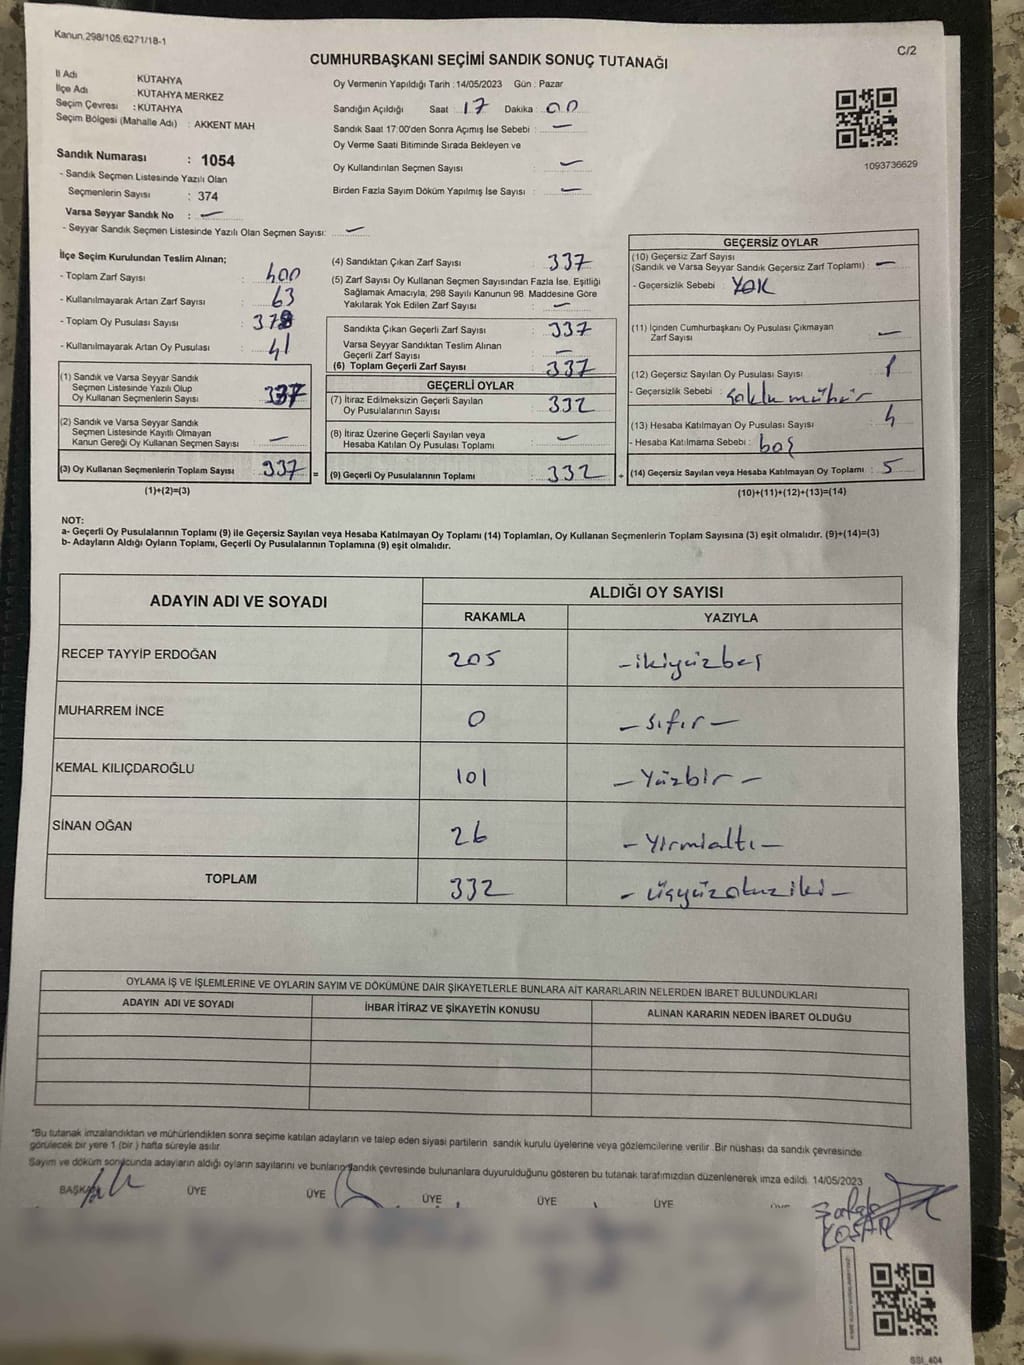 Kanun.298/105.6271/18-1
C/2
CUMHURBAŞKANI SEÇİMİ SANDIK SONUÇ TUTANAĞI
İl Adı KÜTAHYA
İlçe Adı KÜTAHYA MERKEZ
Seçim Çevresi : KÜTAHYA
Seçim Bölgesi (Mahalle Adı) : AKKENT MAH
Sandık Numarası : 1054
- Sandık Seçmen Listesinde Yazılı Olan
Seçmenlerin Sayısı : 374
Varsa Seyyar Sandık No : —
- Seyyar Sandık Seçmen Listesinde Yazılı Olan Seçmen Sayısı: —
Oy Vermenin Yapıldığı Tarih : 14/05/2023 Gün : Pazar
Sandığın Açıldığı Saat : 17 Dakika : 00
Sandık Saat 17:00'den Sonra Açımış İse Sebebi : —
Oy Verme Saati Bitiminde Sırada Bekleyen ve
Oy Kullandırılan Seçmen Sayısı : —
Birden Fazla Sayım Döküm Yapılmış İse Sayısı : —
1093736629
İlçe Seçim Kurulundan Teslim Alınan;
- Toplam Zarf Sayısı : 400
- Kullanılmayarak Artan Zarf Sayısı : 63
- Toplam Oy Pusulası Sayısı : 378
- Kullanılmayarak Artan Oy Pusulası : 41
(1) Sandık ve Varsa Seyyar Sandık
Seçmen Listesinde Yazılı Olup
Oy Kullanan Seçmenlerin Sayısı : 337
(2) Sandık ve Varsa Seyyar Sandık
Seçmen Listesinde Kayıtlı Olmayan
Kanun Gereği Oy Kullanan Seçmen Sayısı : —
(3) Oy Kullanan Seçmenlerin Toplam Sayısı : 337 =
(1)+(2)=(3)
(4) Sandıktan Çıkan Zarf Sayısı : 337
(5) Zarf Sayısı Oy Kullanan Seçmen Sayısından Fazla İse, Eşitliği
Sağlamak Amacıyla, 298 Sayılı Kanunun 98. Maddesine Göre
Yakılarak Yok Edilen Zarf Sayısı : —
Sandıkta Çıkan Geçerli Zarf Sayısı : 337
Varsa Seyyar Sandıktan Teslim Alınan
Geçerli Zarf Sayısı : —
(6) Toplam Geçerli Zarf Sayısı : 337
GEÇERLİ OYLAR
(7) İtiraz Edilmeksizin Geçerli Sayılan
Oy Pusulalarının Sayısı : 332
(8) İtiraz Üzerine Geçerli Sayılan veya
Hesaba Katılan Oy Pusulası Toplamı : —
(9) Geçerli Oy Pusulalarının Toplamı : 332 +
GEÇERSİZ OYLAR
(10) Geçersiz Zarf Sayısı
(Sandık ve Varsa Seyyar Sandık Geçersiz Zarf Toplamı) : —
- Geçersizlik Sebebi : YOK
(11) İçinden Cumhurbaşkanı Oy Pusulası Çıkmayan
Zarf Sayısı : —
(12) Geçersiz Sayılan Oy Pusulası Sayısı : 1
- Geçersizlik Sebebi : çoklu mühür
(13) Hesaba Katılmayan Oy Pusulası Sayısı : 4
- Hesaba Katılmama Sebebi : boş
(14) Geçersiz Sayılan veya Hesaba Katılmayan Oy Toplamı : 5
(10)+(11)+(12)+(13)=(14)
NOT:
a- Geçerli Oy Pusulalarının Toplamı (9) ile Geçersiz Sayılan veya Hesaba Katılmayan Oy Toplamı (14) Toplamları, Oy Kullanan Seçmenlerin Toplam Sayısına (3) eşit olmalıdır. (9)+(14)=(3)
b- Adayların Aldığı Oyların Toplamı, Geçerli Oy Pusulalarının Toplamına (9) eşit olmalıdır.
ADAYIN ADI VE SOYADI ALDIĞI OY SAYISI
RAKAMLA YAZIYLA
RECEP TAYYİP ERDOĞAN 205 -ikiyüzbeş
MUHARREM İNCE 0 -sıfır-
KEMAL KILIÇDAROĞLU 101 -Yüzbir-
SİNAN OĞAN 26 -Yirmialtı-
TOPLAM 332 -üçyüzotuziki-
OYLAMA İŞ VE İŞLEMLERİNE VE OYLARIN SAYIM VE DÖKÜMÜNE DAİR ŞİKAYETLERLE BUNLARA AİT KARARLARIN NELERDEN İBARET BULUNDUKLARI
ADAYIN ADI VE SOYADI İHBAR İTİRAZ VE ŞİKAYETİN KONUSU ALINAN KARARIN NEDEN İBARET OLDUĞU
*Bu tutanak imzalandıktan ve mühürlendikten sonra seçime katılan adayların ve talep eden siyasi partilerin sandık kurulu üyelerine veya gözlemcilerine verilir. Bir nüshası da sandık çevresinde
görülecek bir yere 1 (bir ) hafta süreyle asılır.
Sayım ve döküm sonucunda adayların aldığı oyların sayılarını ve bunların sandık çevresinde bulunanlara duyurulduğunu gösteren bu tutanak tarafımızdan düzenlenerek imza edildi. 14/05/2023
BAŞKAN ÜYE ÜYE ÜYE ÜYE ÜYE
KOŞAR
SSI_404